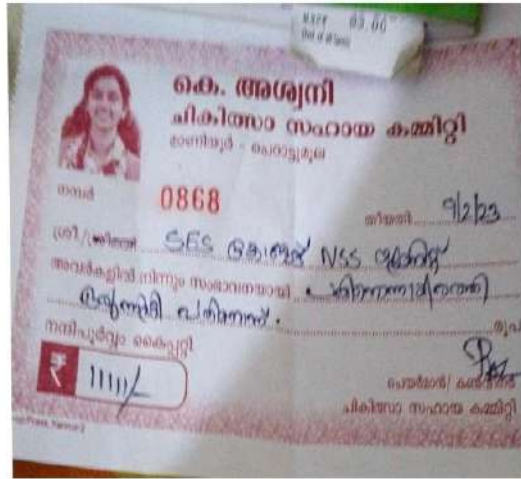 MRP 63.00
കെ. അശ്വനി
ചികിത്സാ സഹായ കമ്മിറ്റി
മാണിയൂർ - ചെറാട്ടുമൂല
നമ്പർ 0868 തീയതി 9/2/23
ശ്രീ/ശ്രീമതി SES കോളേജ് NSS യൂണിറ്റ്
അവർകളിൽ നിന്നും സംഭാവനയായി പതിനൊന്നായിരത്തി
രൂപ
നന്ദിപൂർവ്വം കൈപ്പറ്റി
₹ 11111/-
ചെയർമാൻ/ കൺവീനർ
ചികിത്സാ സഹായ കമ്മിറ്റി